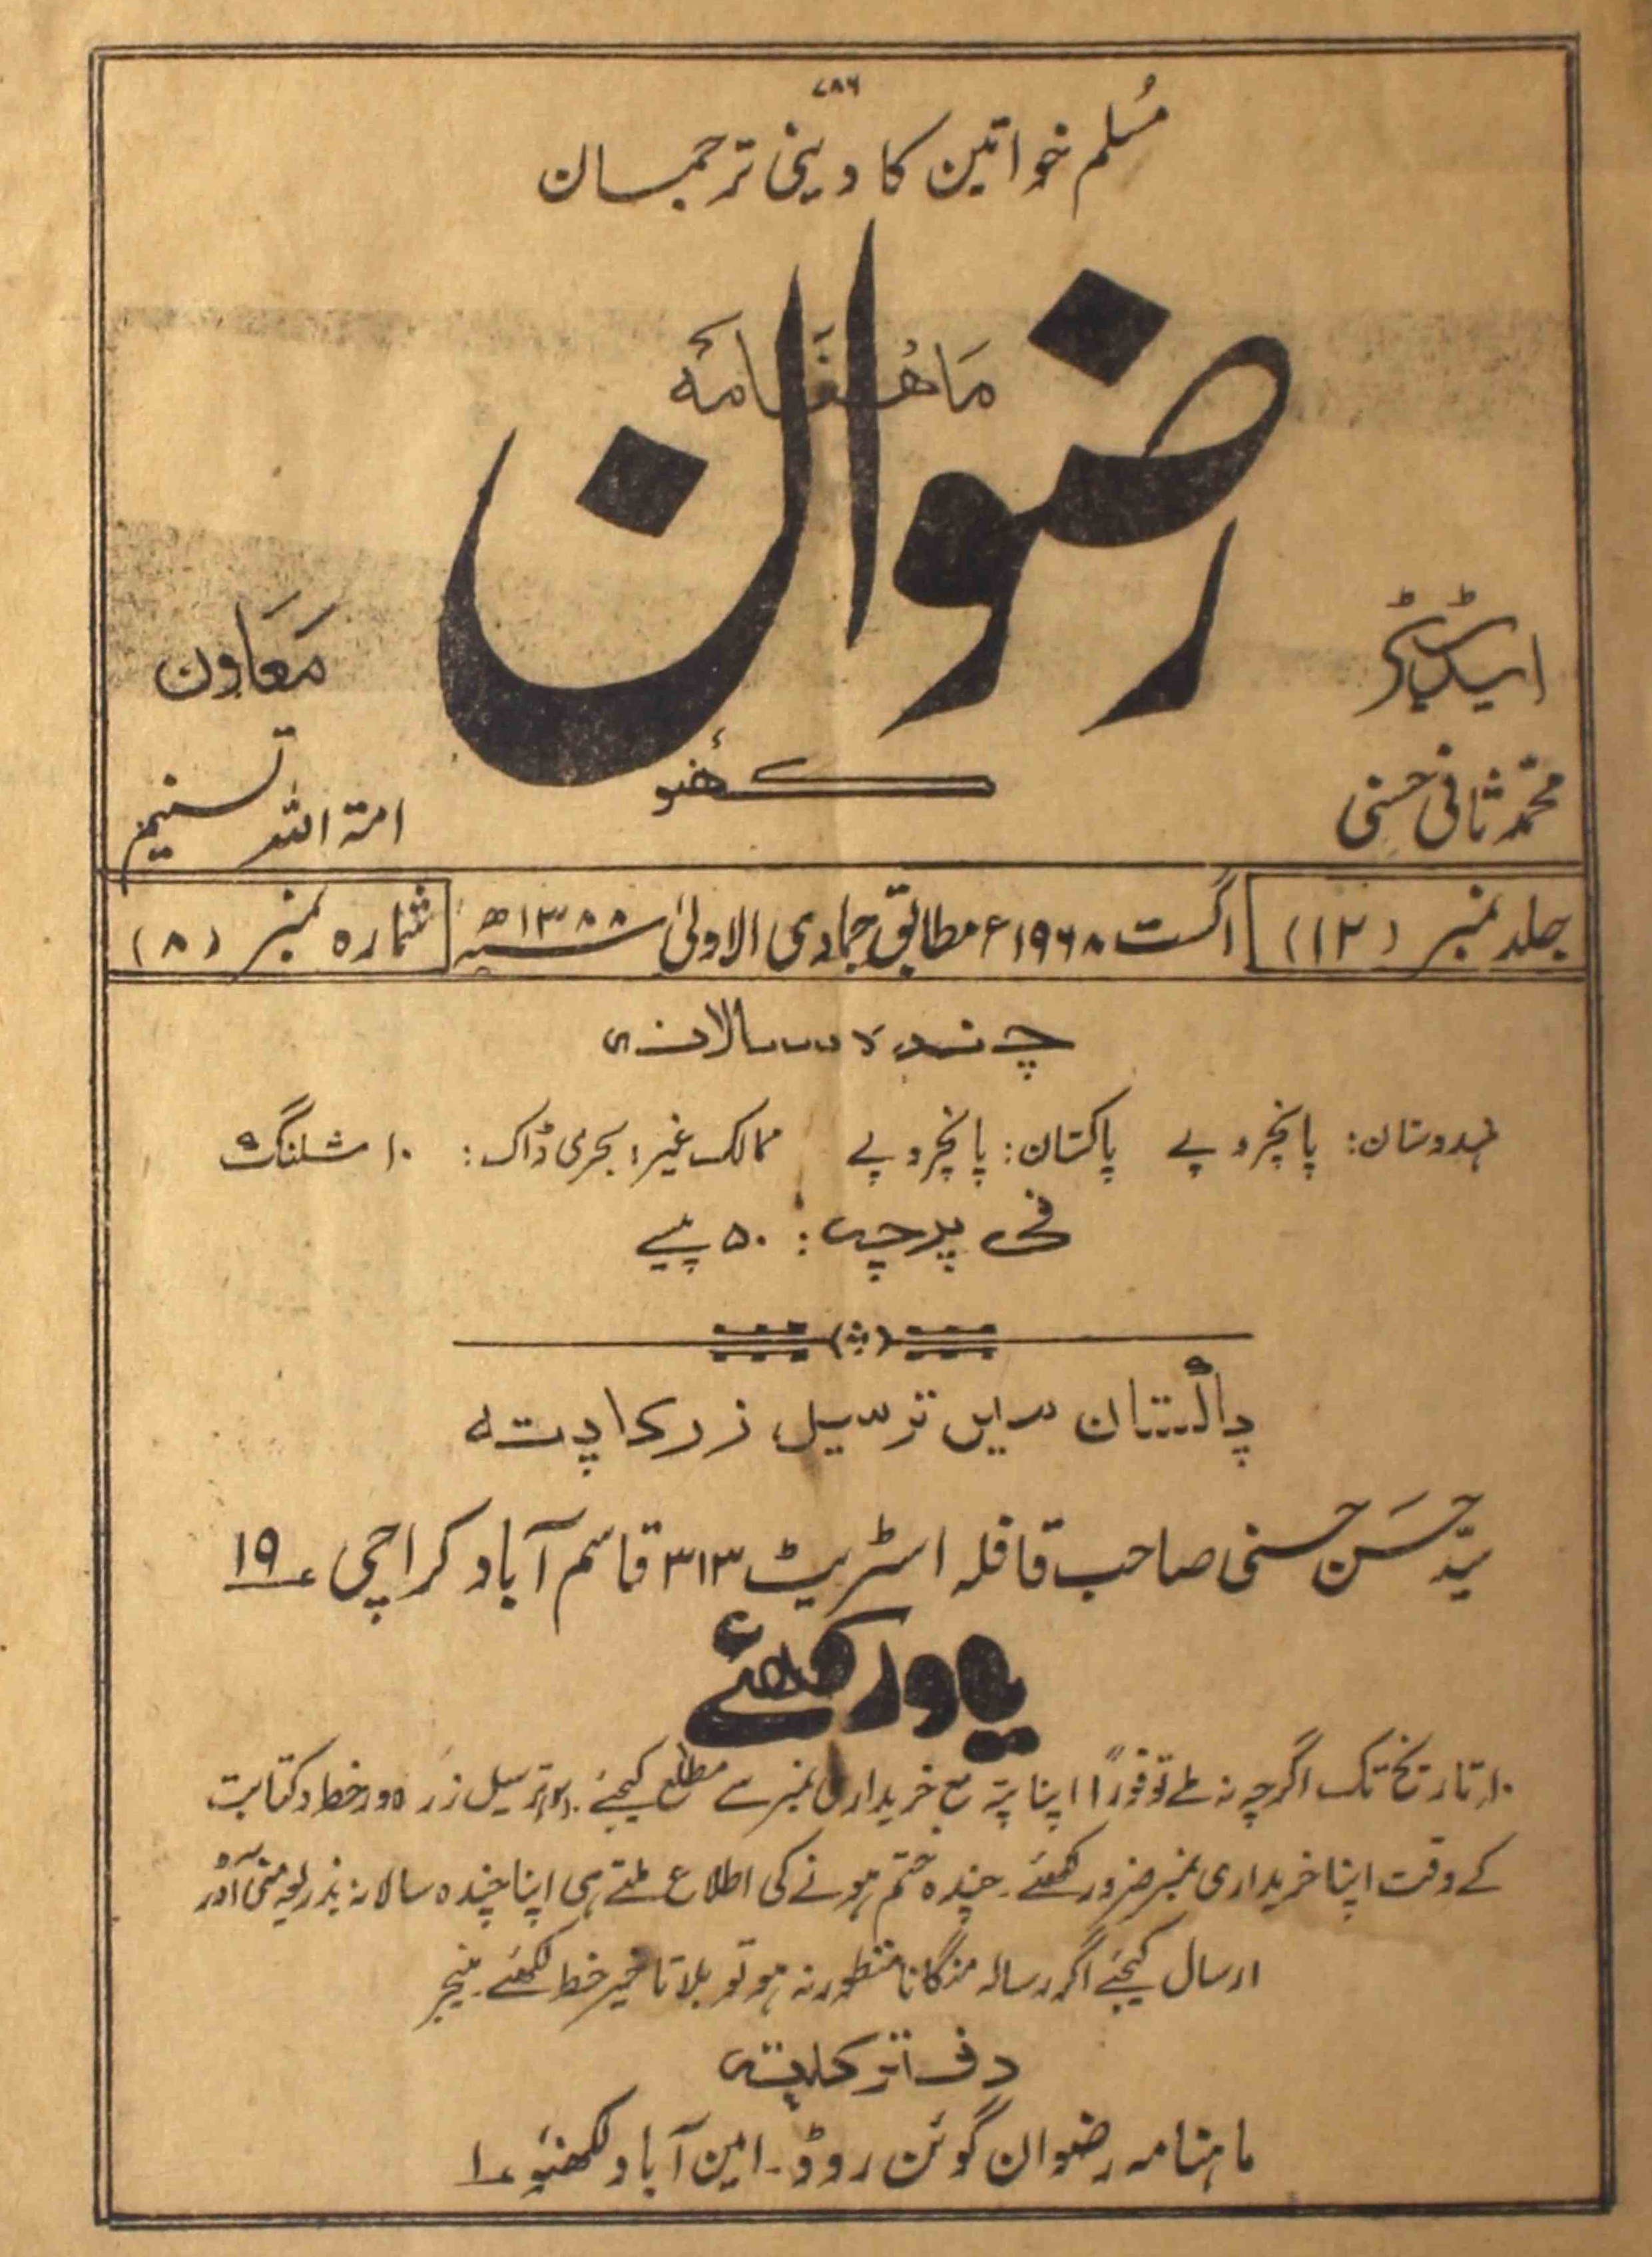 ۷۸۶
مُسلم خواتین کا دینی ترجمان
ماھنامہ
رضوان
لکھنؤ
ایڈیٹر
محمد ثانی حسنی
معاون
امۃ اللہ تسنیم
جلد نمبر (۱۲) اگست ۱۹۶۸ء مطابق جمادی الاولیٰ سنہ ۱۳۸۸ھ شمارہ نمبر (۸)
چندہ سالانہ
ہندوستان: پانچروپے پاکستان: پانچروپے ممالک غیر: بحری ڈاک: ۱۰ شلنگ
فی پرچہ: ۵۰ پیسے
پاکستان میں ترسیل زر کا پتہ
سیّد حسن حسنی صاحب قافلہ اسٹریٹ ۳۱۳ قاسم آباد کراچی ۱۹
یاد رکھئے
۱۰ تاریخ تک اگرچہ نہ ملے تو فوراً اپنا پتہ مع خریداری نمبر سے مطلع کیجئے۔ ترسیل زر اور خط و کتابت
کے وقت اپنا خریداری نمبر ضرور لکھئے۔ چندہ ختم ہونے کی اطلاع ملتے ہی اپنا چندہ سالانہ بذریعہ منی آرڈر
ارسال کیجئے اگر رسالہ منگانا منظور نہ ہو تو بلا تاخیر خط لکھئے۔ منیجر
دفتر کا پتہ
ماہنامہ رضوان گوئن روڈ۔ امین آباد لکھنؤ ۱